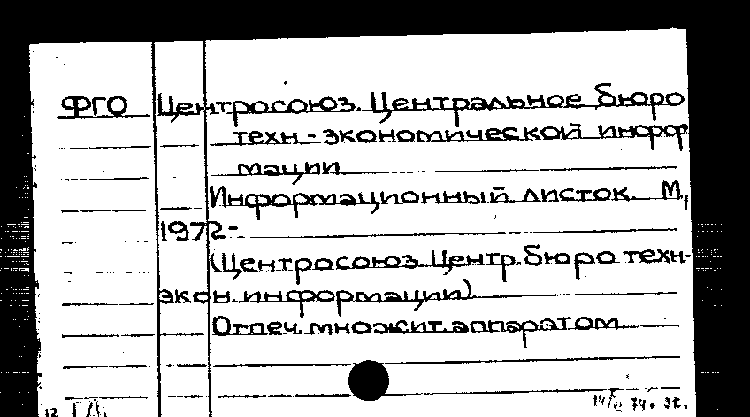 ФГО Центросоюз. Центральное бюро
техн.-экономической инфор
мации.
Информационный листок. М.,
1972-
(Центросоюз. Центр. бюро техн.-
экон. информации)
Отпеч. множит. аппаратом
12